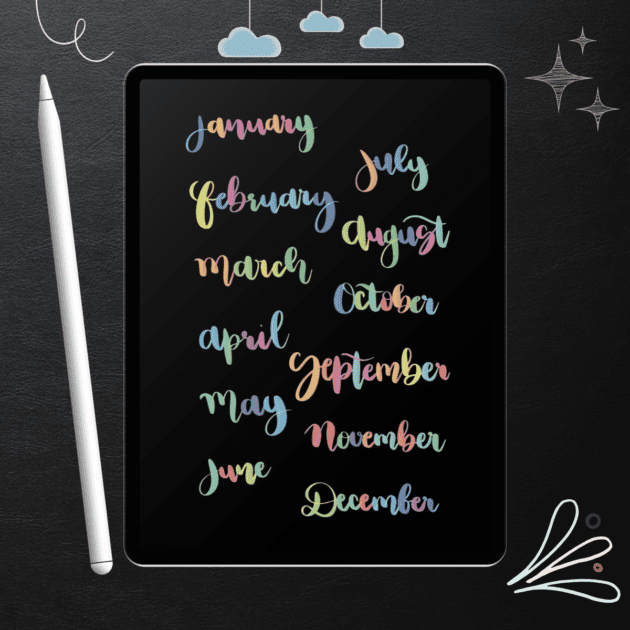 january
February
march
april
may
June
July
august
October
September
November
December